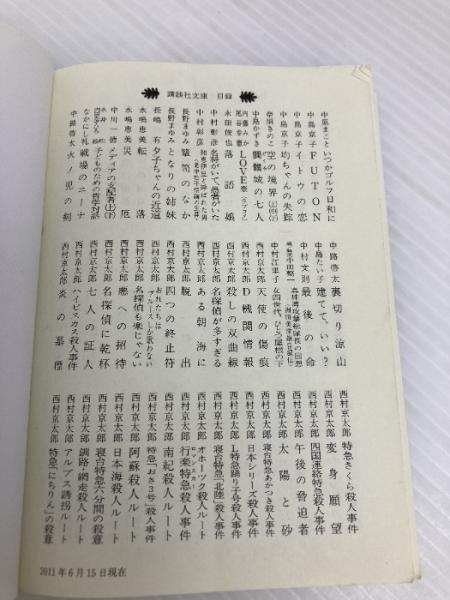 講談社文庫 目録
中島京子 FUTON
中島京子 イトウの恋
中島京子 均ちゃんの失踪
奈須きのこ 空の境界(上)(中)(下)
中島かずき 髑髏城の七人
内藤みか LOVE※
永田俊也 落語娘
中村彰彦
長野まゆみ 箪笥のなか
長野まゆみ となりの姉妹
長嶋有 夕子ちゃんの近道
永嶋恵美 転落
永嶋恵美 災厄
中川一徳 メディアの支配者(上)(下)
子どものための哲学対話
なかにし礼 戦場のニーナ
中路啓太 火ノ児の剣
中路啓太 裏切り涼山
中島たい子 建てて、いい?
中村文則 最後の命
中村江里子 女四世代、ひとつ屋根の下
西村京太郎 天使の傷痕
西村京太郎 D機関情報
西村京太郎 殺しの双曲線
西村京太郎 名探偵が多すぎる
西村京太郎 ある朝海に
西村京太郎 脱出
西村京太郎 四つの終止符
西村京太郎 おれたちはブルースしか歌わない
西村京太郎 名探偵も楽じゃない
西村京太郎 悪への招待
西村京太郎 名探偵に乾杯
西村京太郎 七人の証人
西村京太郎 ハイビスカス殺人事件
西村京太郎 炎の墓標
西村京太郎 特急さくら殺人事件
西村京太郎 変身願望
西村京太郎 四国連絡特急殺人事件
西村京太郎 午後の脅迫者
西村京太郎 太陽と砂
西村京太郎 寝台特急あかつき殺人事件
西村京太郎 日本シリーズ殺人事件
西村京太郎 L特急踊り子号殺人事件
西村京太郎 寝台特急「北陸」殺人事件
西村京太郎 オホーツク殺人ルート
西村京太郎 行楽特急殺人事件
西村京太郎 南紀殺人ルート
西村京太郎 特急「おき3号」殺人事件
西村京太郎 阿蘇殺人ルート
西村京太郎 日本海殺人ルート
西村京太郎 寝台特急六分間の殺意
西村京太郎 釧路・網走殺人ルート
西村京太郎 アルプス誘拐ルート
西村京太郎 特急「にちりん」の殺意
2011年6月15日現在